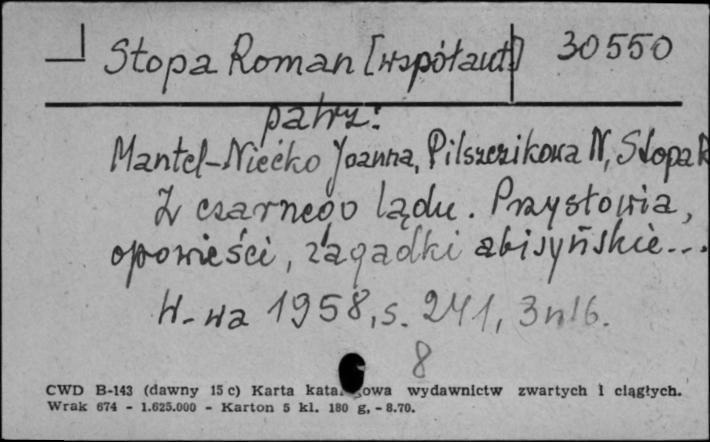 Stopa Roman [współaut.] 30550
patrz:
Mantel-Niećko Joanna, Pilszczikowa N, Stopa R
Z czarnego lądu. Przysłowia,
opowieści, zagadki abisyńskie...
W-wa 1958, s. 241, 3nlb.
8
CWD B-143 (dawny 15 c) Karta kata⁠owa wydawnictw zwartych i ciągłych.
Wrak 674 - 1.625.000 - Karton 5 kl. 180 g, - 8.70.